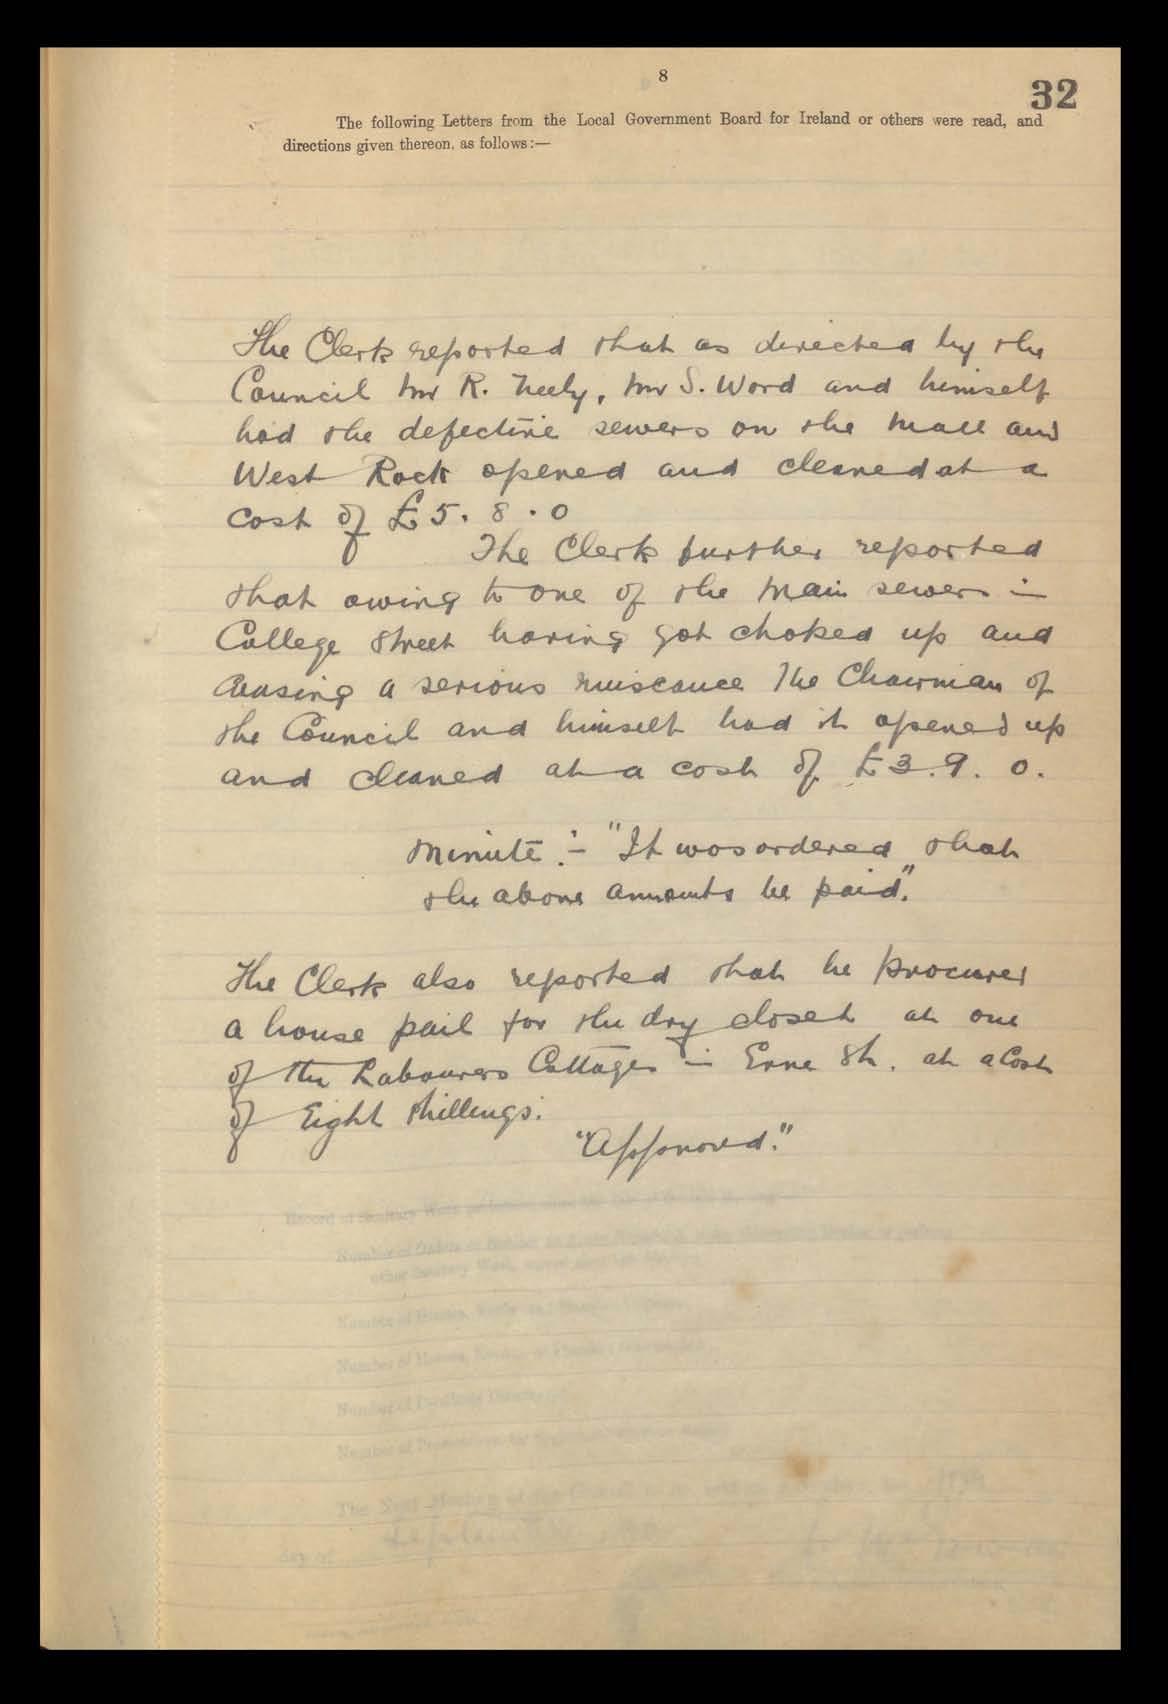 8
32
The following Letters from the Local Government Board for Ireland or others were read, and
directions given thereon, as follows:—
The Clerk reported that as directed by the
Council Mr R. Neely, Mr S. Ward and himself
had the defective sewers on the Mall and
West Rock opened and cleaned at a
cost of £5. 8. 0
The Clerk further reported
that owing to one of the main sewers in
College Street having got choked up and
causing a serious nuiscance the Chairman of
the Council and himself had it opened up
and cleaned at a cost of £3. 9. 0.
Minute :- "It was ordered that
the above amounts be paid".
The Clerk also reported that he procured
a house pail for the dry closet at one
of the Labourers Cottages in Erne St. at a Cost
of Eight shillings.
"Approved."